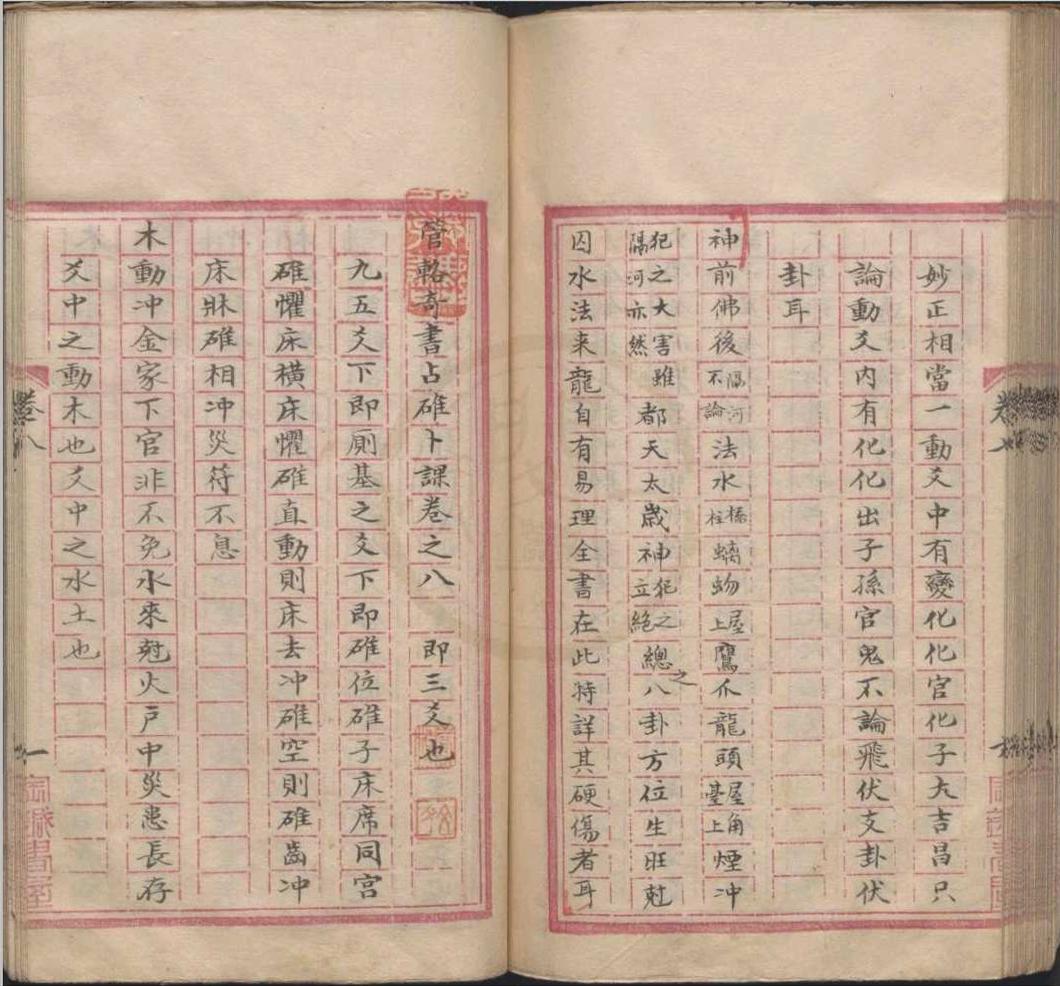 妙正相當一動爻中有變化化官化子大吉昌只
論動爻内有化化出子孫官鬼不論飛伏支卦伏
卦耳
神前佛後隔河不論法水橋柱螭吻屋上鷹爪龍頭屋角臺上煙冲
犯之大害雖隔河亦然都天太歲神犯之立絶總之八卦方位生旺尅
囚水法来龍自有易理全書在此特詳其硬傷者耳
卷七
管輅奇書占碓卜課卷之八 即三爻也
九五爻下即厠基之爻下即碓位碓子床席同宫
碓懼床横床懼碓直動則床去冲碓空則碓齒冲
床牀碓相冲災符不息
木動冲金家下官非不免水來尅火戸中災患長存
爻中之動木也爻中之水土也
卷八
一